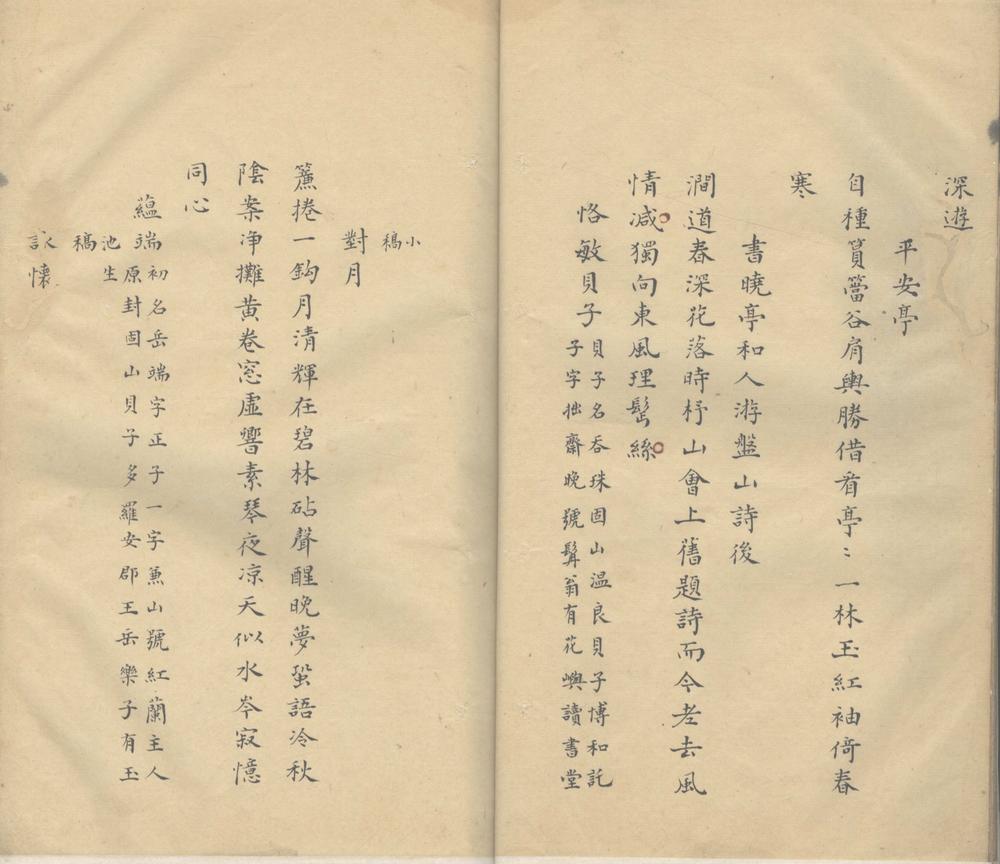 深遊
平安亭
自種篔簹谷肩輿勝借看亭〻一林玉紅袖倚春
寒
書曉亭和人游盤山詩後
澗道春深花落時杼山會上舊題詩而今老去風
情减獨向東風理髩絲
恪敏貝子
貝子名吞珠固山温良貝子博和託
子字拙齋晚號髯翁有花嶼讀書堂
小
稿
對月
簾捲一鈎月清輝在碧林砧聲醒晚夢蛩語冷秋
陰案净攤黄卷窓虛響素琴夜凉天似水岑寂憶
同心
藴端
初名岳端字正子一字兼山號紅蘭主人
原封固山貝子多羅安郡王岳樂子有玉
池生
稿
詠懷